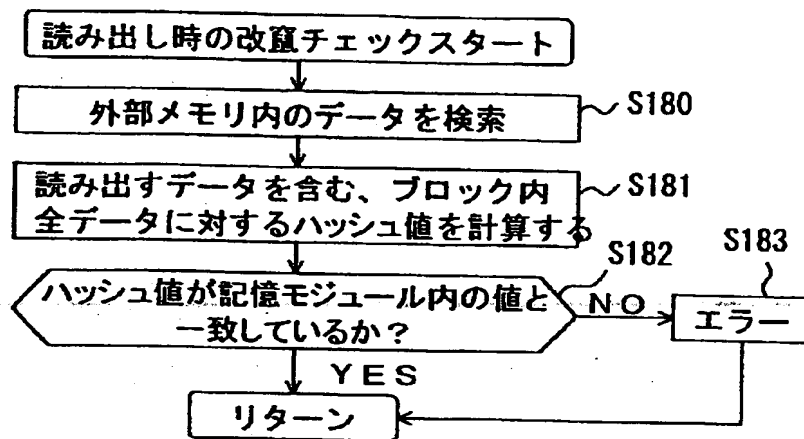 読み出し時の改竄チェックスタート
外部メモリ内のデータを検索
S180
読み出すデータを含む、ブロック内
全データに対するハッシュ値を計算する
S181
ハッシュ値が記憶モジュール内の値と
一致しているか？
S182
NO
S183
エラー
YES
リターン